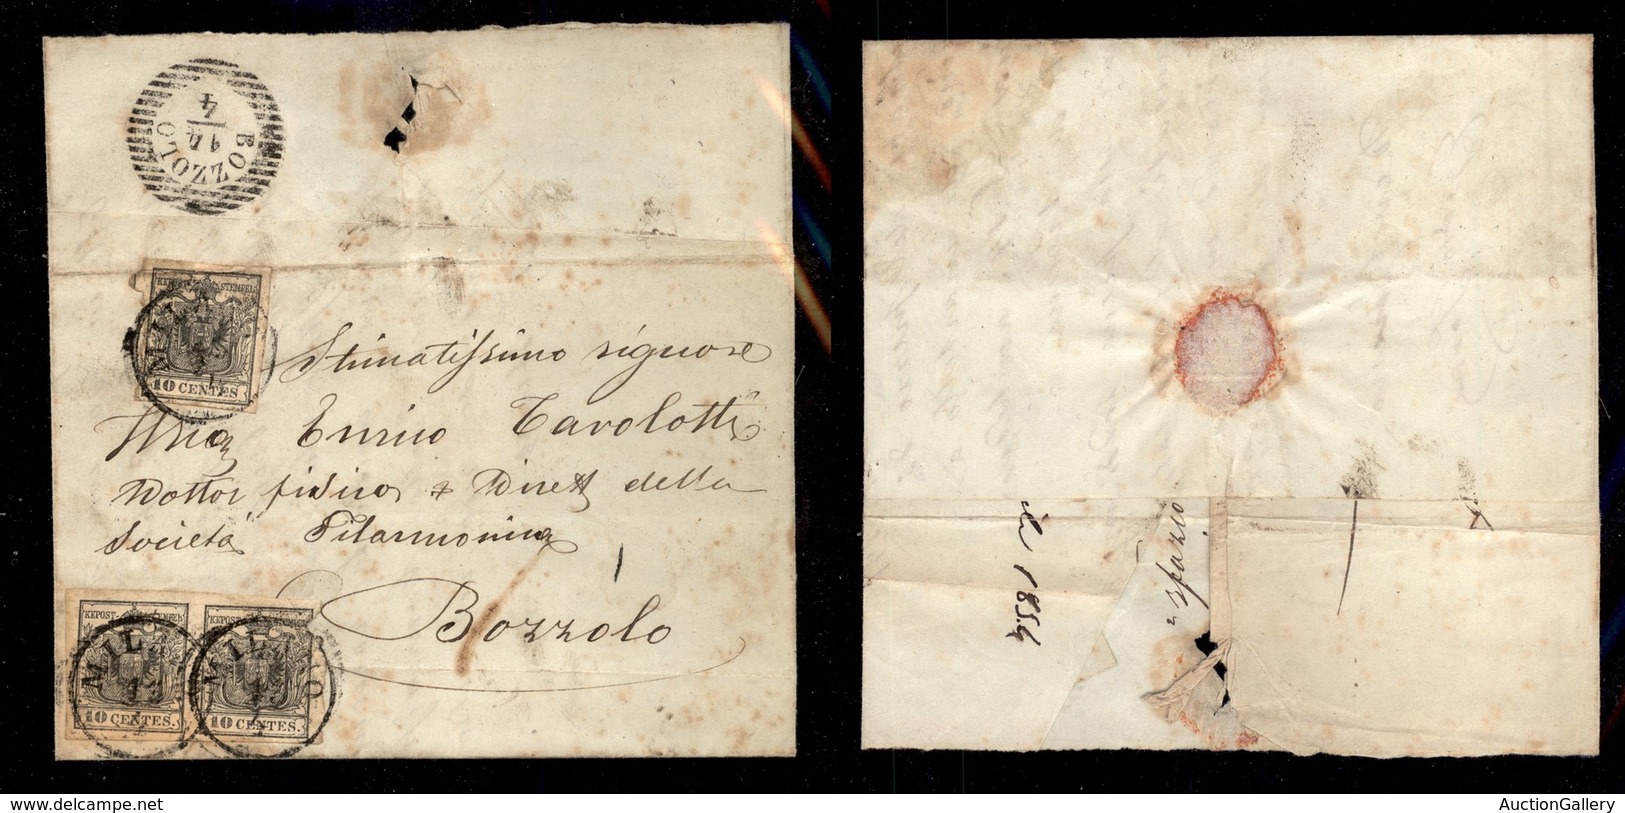 BOZZOLO
14
4
KEPOST-STEMPEL
10 CENTES
Stimatissimo signore
Enrico Tavolotti
Dottor fisico e Dirett della
Società Filarmonica
Bozzolo
KEPOST-STEMPEL
10 CENTES.
10 CENTES.
MILANO
MILANO
1854
spazio
www.delcampe.net
AuctionGallery